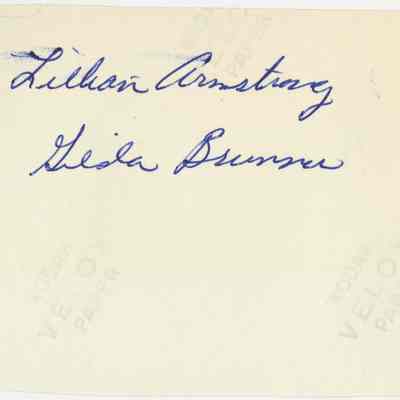 Lillian Armstrong
Gilda Brunner
KODAK
VELOX
PAPER
KODAK
VELOX
PAPER